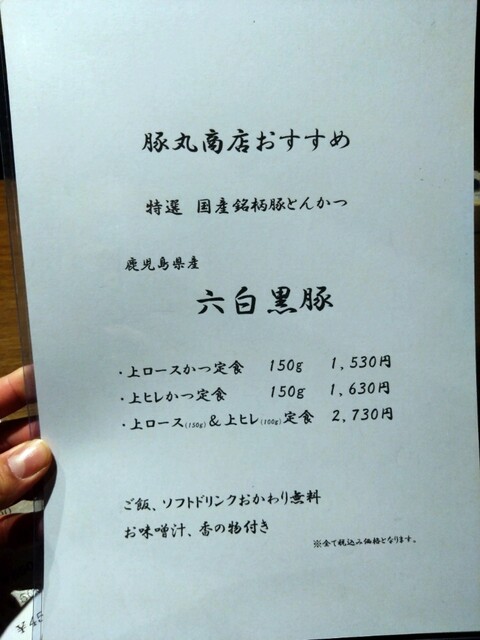 豚丸商店おすすめ
特選 国産銘柄豚とんかつ
鹿児島県産
六白黒豚
・上ロースかつ定食 150g 1,530円
・上ヒレかつ定食 150g 1,630円
・上ロース(150g)&上ヒレ(100g)定食 2,730円
ご飯、ソフトドリンクおかわり無料
お味噌汁、香の物付き
※全て税込み価格となります。